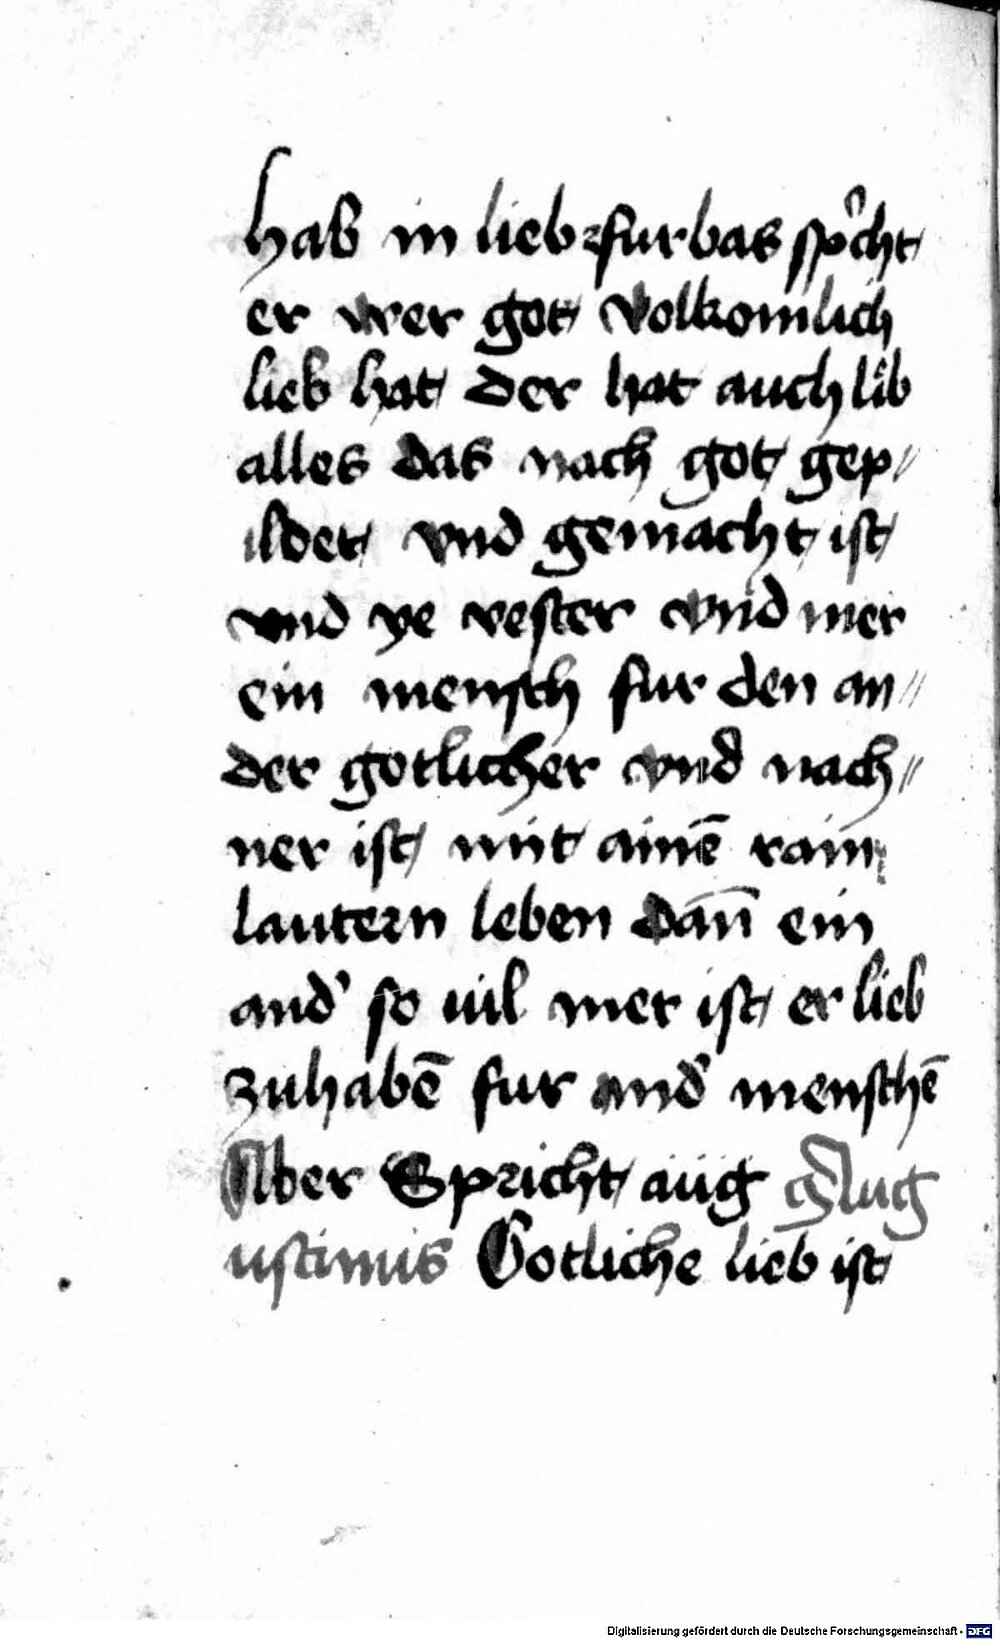 hab in lieb furbas spͥcht
er wer got volkomlich
lieb hat der hat auch lib
alles das nach got gep//
ildet vnd gemacht ist
vnd ye vester vnd mer
ein mensch fur den an//
der gotlicher vnd nach//
ner ist mit ainē rain
lautern leben dan̄ ein
and' so uil mer ist er lieb
zuhabē fur and' menschē
Aber Spricht aug Aug
ustinus Gotliche lieb ist
Digitalisierung gefördert durch die Deutsche Forschungsgemeinschaft - DFG